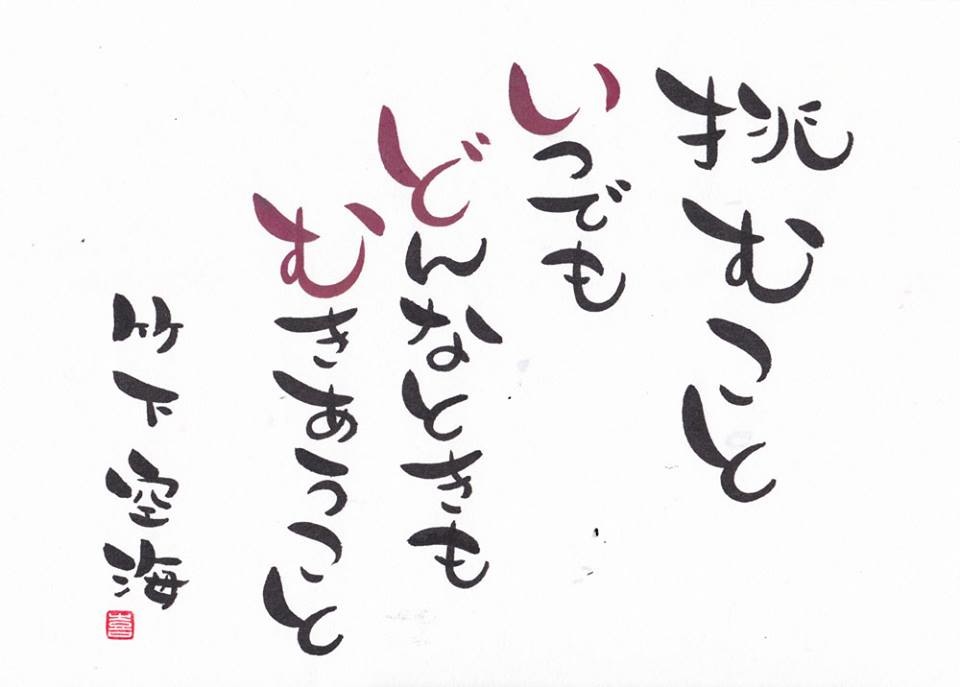 挑むこと
いつでも
どんなときも
むきあうこと
竹下空海
喜